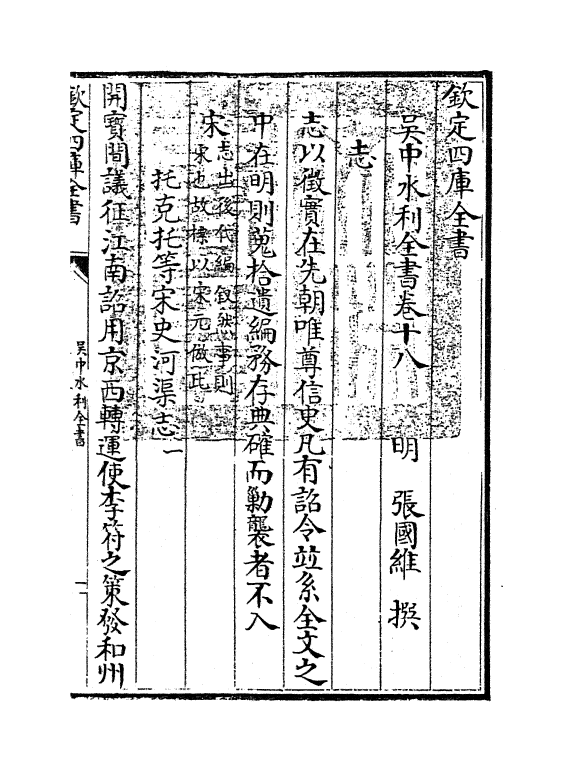 欽定四庫全書
吳中水利全書卷十八　明　張國維　撰
志
志以徵實在先朝唯尊信史凡有詔令竝系全文之
中在明則蒐拾遺編務存典確而勦襲者不入
宋
志出後代編敘然事則
宋也故標以宋元倣此
托克托等宋史河渠志一
開寶間議征江南詔用京西轉運使李符之策發和州
欽定四庫全書
吳中水利全書
一